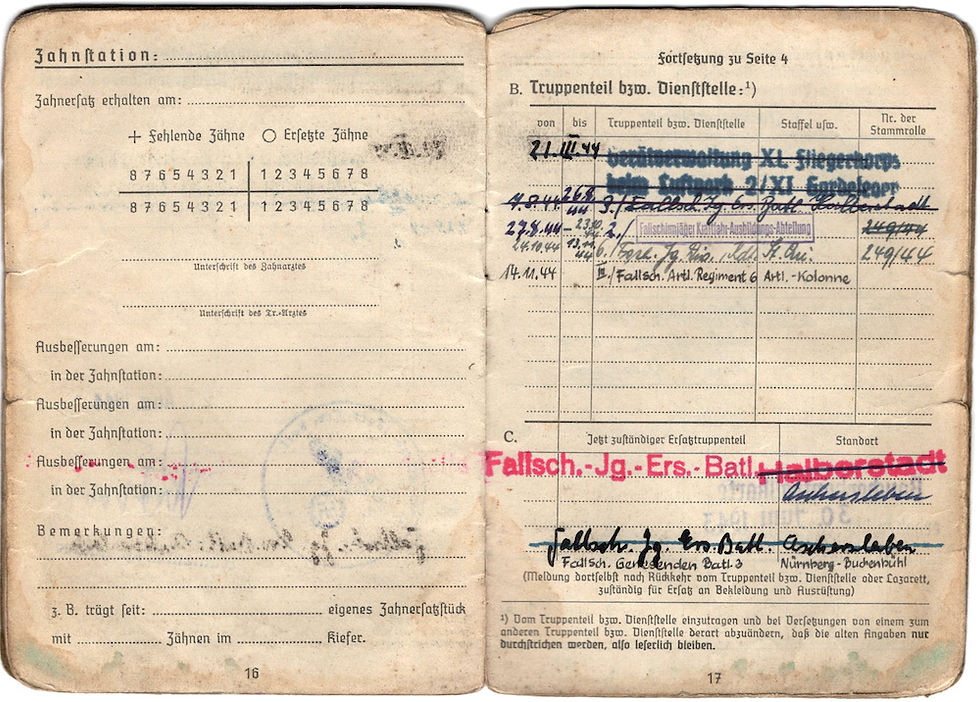 Zahnstation:
Zahnersatz erhalten am:
+ Fehlende Zähne ○ Ersetzte Zähne
8 7 6 5 4 3 2 1 | 1 2 3 4 5 6 7 8
8 7 6 5 4 3 2 1 | 1 2 3 4 5 6 7 8
Unterschrift des Zahnarztes
Unterschrift des Tr.-Arztes
Ausbesserungen am:
in der Zahnstation:
Ausbesserungen am:
in der Zahnstation:
Ausbesserungen am:
in der Zahnstation:
Bemerkungen:
z. B. trägt seit: eigenes Zahnersatzstück
mit Zähnen im Kiefer.
16
Fortsetzung zu Seite 4
B. Truppenteil bzw. Dienststelle:¹)
von bis Truppenteil bzw. Dienststelle Staffel usw. Nr. der Stammrolle
21.III.44 Gerätverwaltung XI. Fliegerkorps
beim Luftpark 2/XI Gardeleger
7.8.44 26.8.44 3./Fallsch. Jg. Ers. Batl. Halberstadt
27.8.44 - 23.10.44 2./ Fallschirmjäger Kraftfahr-Ausbildungs-Abteilung 249/44
24.10.44 13.11.44 6./ Jg. 249/44
14.11.44 III./Fallsch. Artl. Regiment 6 Artl.-Kolonne
C. Jetzt zuständiger Ersatztruppenteil Standort
Fallsch.-Jg.-Ers.-Batl. Halberstadt
Aschersleben
30. Juni 1943
Fallsch. Jg. Ers. Batl. Aschersleben
Fallsch. Genesenden Batl. 3 Nürnberg-Buchenbühl
(Meldung dortselbst nach Rückkehr vom Truppenteil bzw. Dienststelle oder Lazarett,
zuständig für Ersatz an Bekleidung und Ausrüstung)
¹) Vom Truppenteil bzw. Dienststelle einzutragen und bei Versetzungen von einem zum
anderen Truppenteil bzw. Dienststelle derart abzuändern, daß die alten Angaben nur
durchstrichen werden, also leserlich bleiben.
17